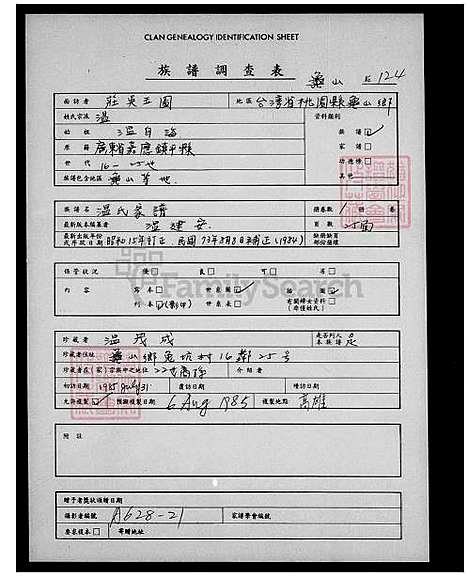 CLAN GENEALOGY IDENTIFICATION SHEET
族譜調查表 龜山 124
面訪者 莊吳玉圖 地區 台灣省桃園縣龜山鄉
姓氏宗派 溫 資料類別
始祖 溫自海 族譜 ☑
原籍 廣東省嘉應鎮平縣 家譜 □
世代 16— 功德榜 □
族譜包含地區 龜山等地 其他 □
族譜名 溫氏家譜 總卷數 1 卷
最新版本編纂者 溫建安 頁數
最新出版年份或序跋日期 昭和15年訂正、民國73年8月8日補正(1984)
保管狀況 優□ 良□ 可□ 劣□
內容 寫本□ 世系圖☑
刊本☑(影印) 世系表□
FamilySearch
珍藏者 溫茂成 是否列入本族譜 是
珍藏者住址 龜山鄉兔坑村16鄰25號
珍藏者在(家)宗族中之地位 介紹者
初訪日期 1985 July 31 覆訪日期 續訪日期
允許複製☑ 預期複製日期 6 Aug 1985 複製地點 高雄
附註
贈予者獎狀頒贈日期
攝影者編號 A628-21 家譜學會編號
要家樣本□ 寄贈地址